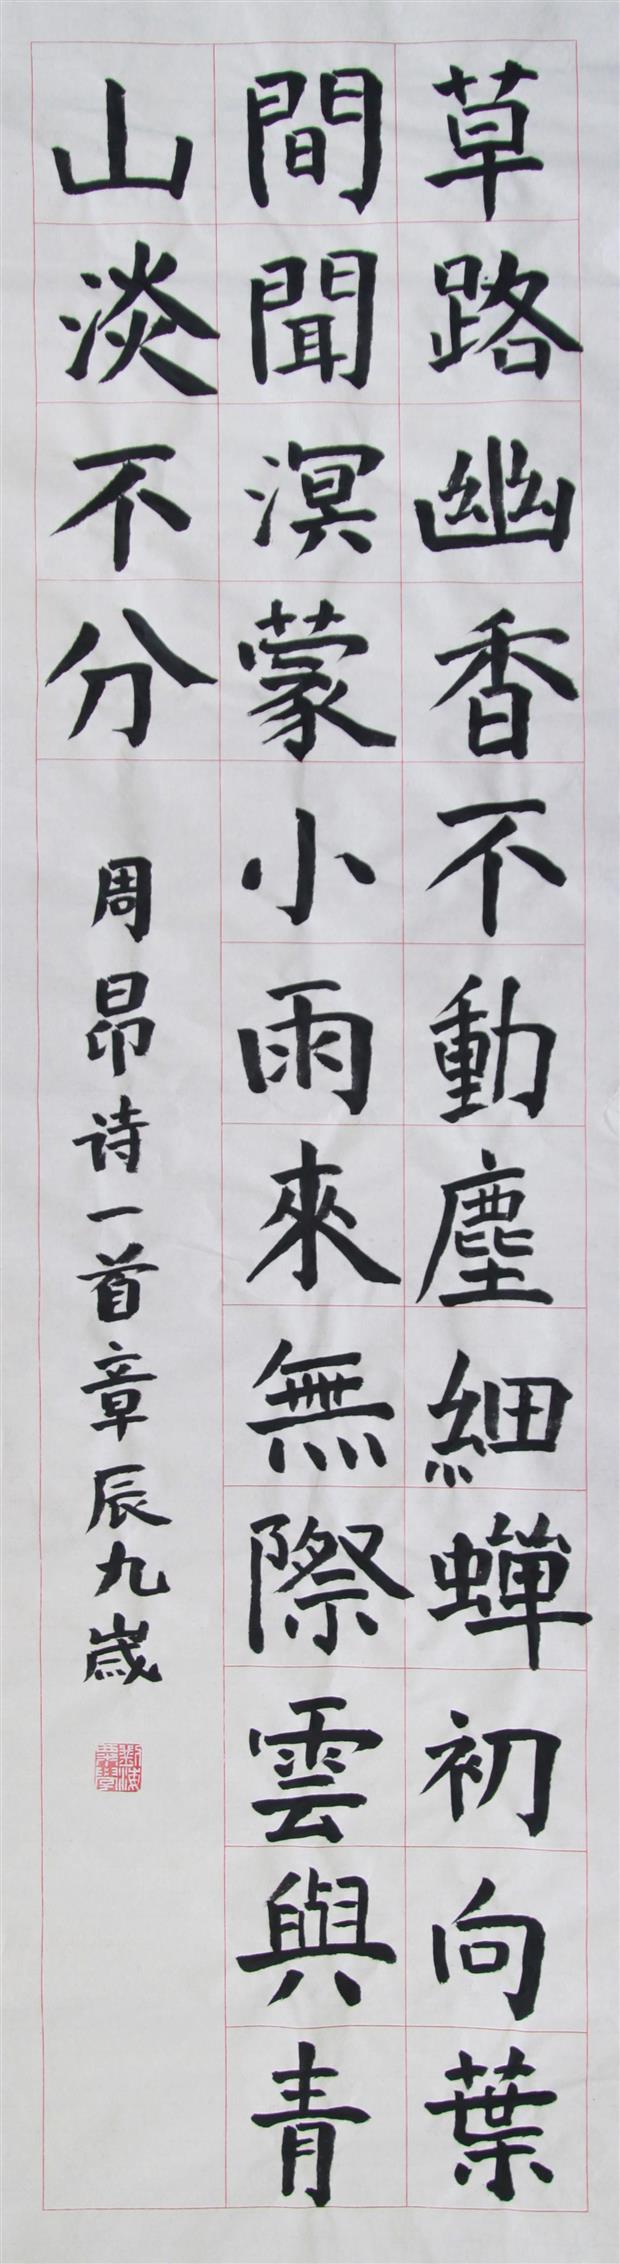 草路幽香不動塵細蟬初向葉
間聞溟蒙小雨來無際雲與青
山淡不分
周昂诗一首章辰九歲